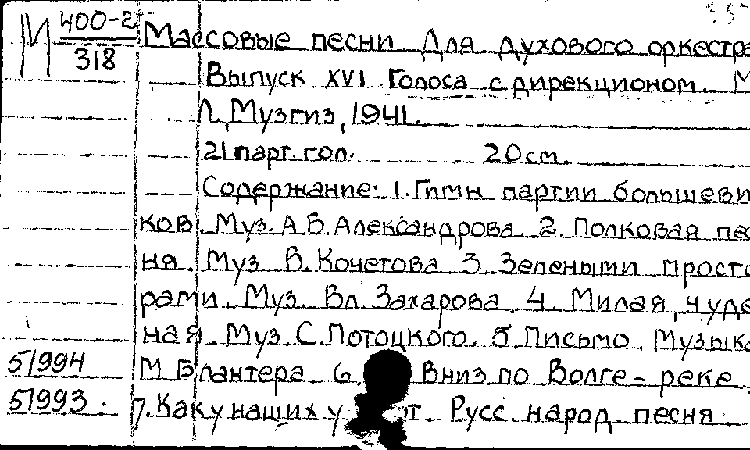 М 400-2
318
Массовые песни для духового оркестра
Выпуск XVI Голоса с дирекционом. М
Л, Музгиз, 1941.
21 парт. гол. 20 см.
Содержание: 1. Гимн партии большеви
ков. Муз. А.В. Александрова 2. Полковая пес
ня. Муз В. Кочетова 3. Зелеными просто
рами. Муз. Вл. Захарова. 4. Милая, чудес
ная. Муз. С. Потоцкого. 5. Письмо. Музыка
51994 М Блантера. 6. Вниз по Волге-реке.
51993. 7. Как у наших у Русс. народ песня